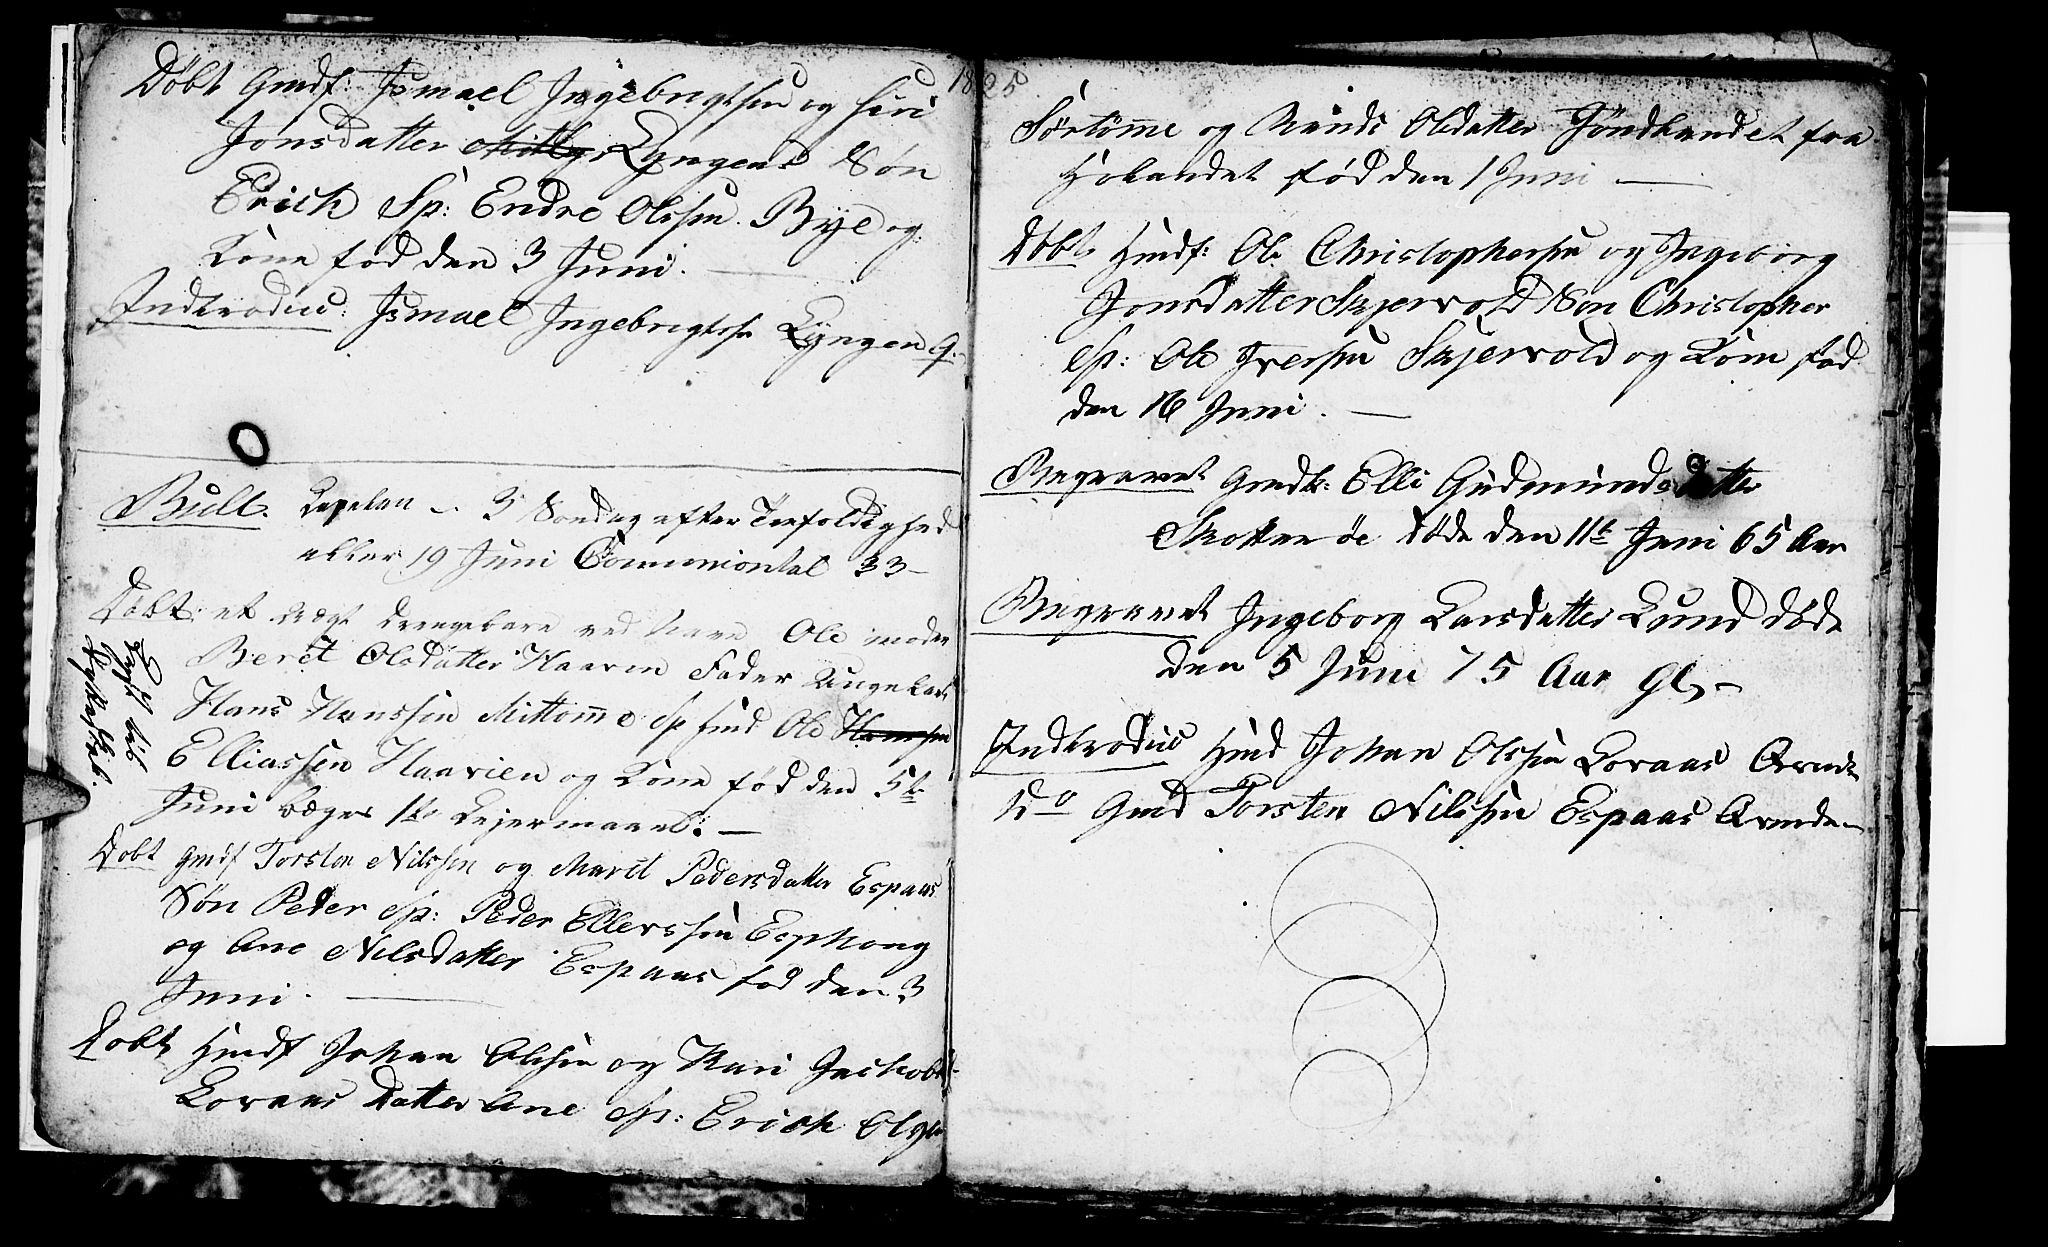 1825
Døbt Gmdf: Ismael Ingebrigtsen og Siri
Jonsdatter Lyngens Søn
Erich Sp: Endre Olssen Bye og
Kone fød den 3 Juni.
Introduc: Ismael Ingebrigtsn Lyngen q.
Bull. Capelan 3 Søndag after Trefoldighed
eller 19 Juni Communiontal 33
Døbt: et uægt Drengebarn ved Navn Ole moder
Beret Olsdatter Haaven Fader Ungekarl
Hans Hanssøn Mittømme Sp Hmd Ole Hanssen
Elliassen Haavien og Kone fød den 5te
Juni begges 1te Lejermaael.
Døbt Gmdf Torsten Nilssen og Marit Pedersdatter Espaas
Søn Peder Sp: Peder Ellevssøn Esphoug
og Ane Nilsdatter Espaas fød den 3
Juni.
Døbt Hmdf Johan Olssøn og Kari Jachobs
Loraas Datter Ane Sp: Erich Olssen
Sørtømme og Randi Olsdatter fra
Holandet fød den 1 Juni
Døbt Hmdf: Ole Christophersen og Ingeborg
Jonsdatter Skjervold Søn Christopher
Sp: Ole Iversen Skjervold og Kone fød
den 16 Juni.
Begravet Gmdk: Elli Gudmundsdatter
Skotterøe døde den 11te Juni 65 Aar
Begravet Ingeborg Larsdatter Lund døde
den 5 Juni 75 Aar Gl,
Introduc Hmd Johan Olssøn Loraas Qvinde
Do Gmd Torsten Nilssøn Espaas Qvinde